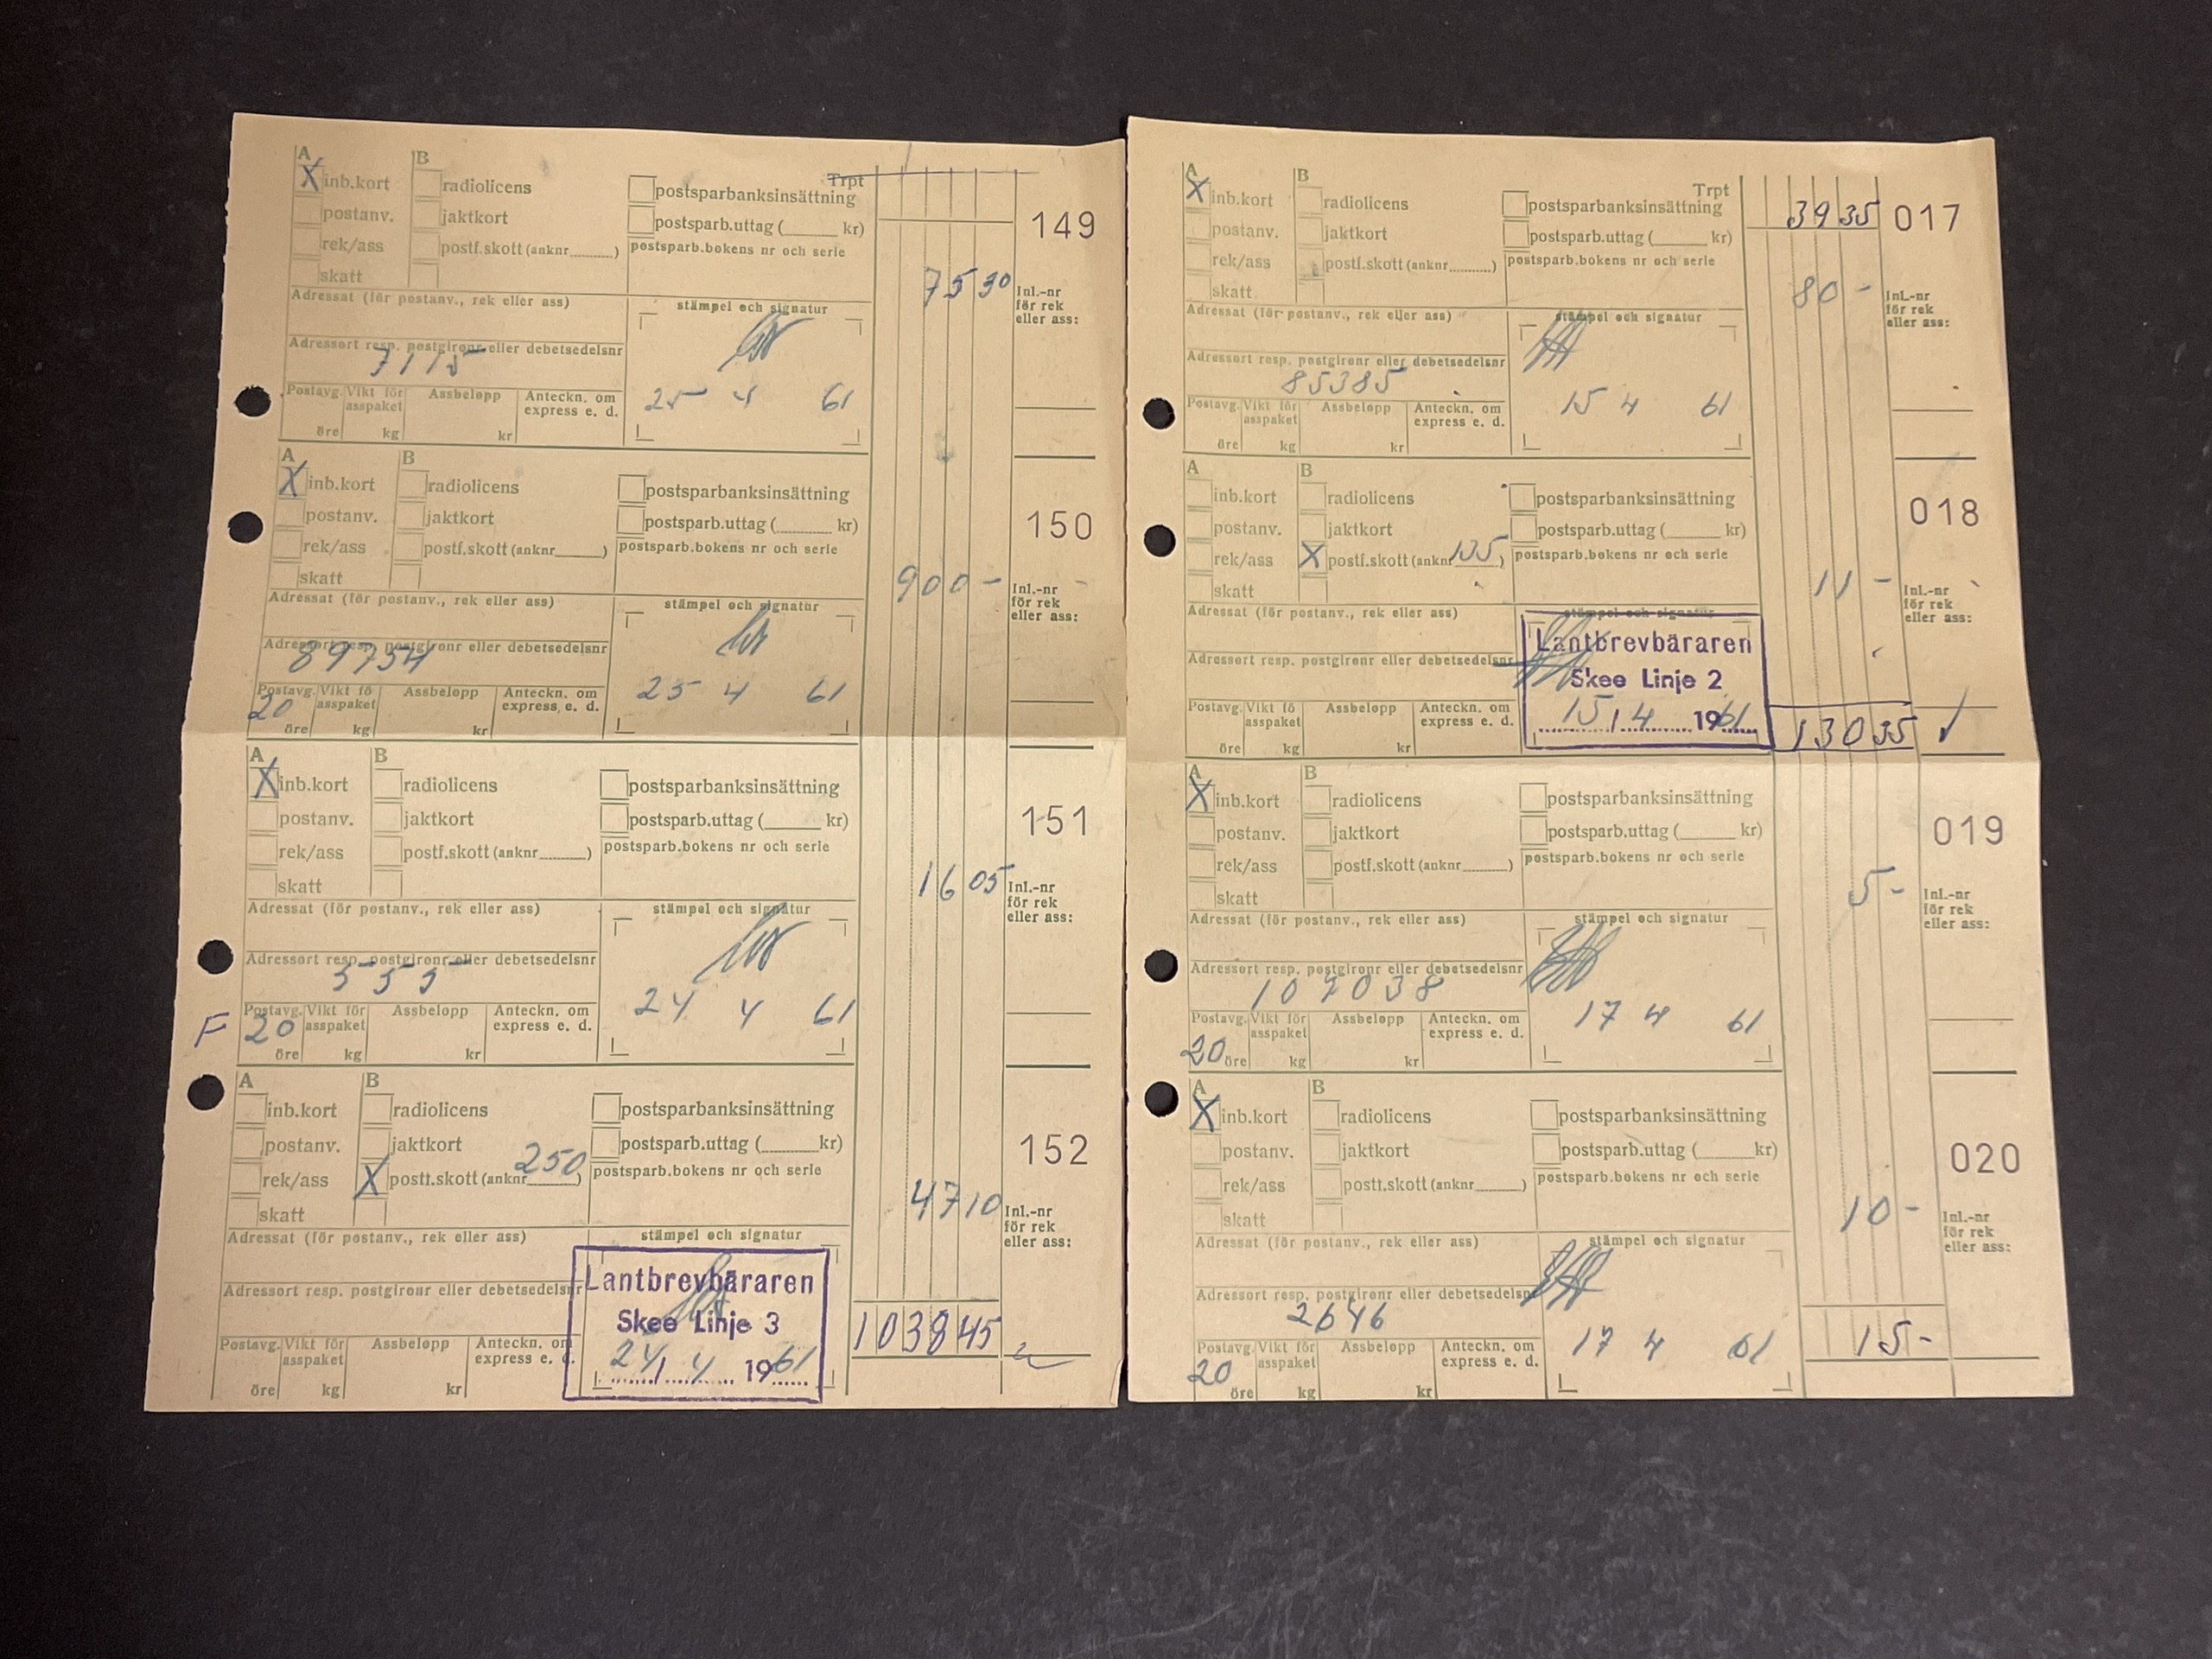 A B
X inb.kort radiolicens postsparbanksinsättning Trpt
postanv. jaktkort postsparb.uttag ( kr) 149
rek/ass postf.skott (anknr ) postsparb.bokens nr och serie
skatt
75 30 Inl.-nr för rek eller ass:
Adressat (för postanv., rek eller ass) stämpel och signatur
Adressort resp. postgironr eller debetsedelsnr
7115
Postavg. Vikt för asspaket Assbelopp Anteckn. om express e. d.
25 4 61
öre kg kr
A B
X inb.kort radiolicens postsparbanksinsättning
postanv. jaktkort postsparb.uttag ( kr) 150
rek/ass postf.skott (anknr ) postsparb.bokens nr och serie
skatt
900 - Inl.-nr för rek eller ass:
Adressat (för postanv., rek eller ass) stämpel och signatur
Adressort resp. postgironr eller debetsedelsnr
89754
Postavg. Vikt fö asspaket Assbelopp Anteckn. om express e. d.
25 4 61
20 öre kg kr
A B
X inb.kort radiolicens postsparbanksinsättning
postanv. jaktkort postsparb.uttag ( kr) 151
rek/ass postf.skott (anknr ) postsparb.bokens nr och serie
skatt
16 05 Inl.-nr för rek eller ass:
Adressat (för postanv., rek eller ass) stämpel och signatur
Adressort resp. postgironr eller debetsedelsnr
555
Postavg. Vikt för asspaket Assbelopp Anteckn. om express e. d.
24 4 61
F 20 öre kg kr
A B
inb.kort radiolicens postsparbanksinsättning
postanv. jaktkort postsparb.uttag ( kr) 152
rek/ass X postf.skott (anknr 250 ) postsparb.bokens nr och serie
skatt
47 10 Inl.-nr för rek eller ass:
Adressat (för postanv., rek eller ass) stämpel och signatur
Adressort resp. postgironr eller debetsedelsnr
Lantbrevbäraren
Skee Linje 3
24/ 4 1961
1038 45
Postavg. Vikt för asspaket Assbelopp Anteckn. om express e. d.
öre kg kr
A B
X inb.kort radiolicens postsparbanksinsättning Trpt 39 35 017
postanv. jaktkort postsparb.uttag ( kr)
rek/ass postf.skott (anknr ) postsparb.bokens nr och serie
skatt
80 - Inl.-nr för rek eller ass:
Adressat (för postanv., rek eller ass) stämpel och signatur
Adressort resp. postgironr eller debetsedelsnr
85385
Postavg. Vikt för asspaket Assbelopp Anteckn. om express e. d.
15 4 61
öre kg kr
A B
inb.kort radiolicens postsparbanksinsättning
postanv. jaktkort postsparb.uttag ( kr) 018
rek/ass X postf.skott (anknr 135 ) postsparb.bokens nr och serie
skatt
11 - Inl.-nr för rek eller ass:
Adressat (för postanv., rek eller ass) stämpel och signatur
Adressort resp. postgironr eller debetsedelsnr
Lantbrevbäraren
Skee Linje 2
15/ 4 1961
130 35
Postavg. Vikt för asspaket Assbelopp Anteckn. om express e. d.
öre kg kr
A B
X inb.kort radiolicens postsparbanksinsättning
postanv. jaktkort postsparb.uttag ( kr) 019
rek/ass postf.skott (anknr ) postsparb.bokens nr och serie
skatt
5 - Inl.-nr för rek eller ass:
Adressat (för postanv., rek eller ass) stämpel och signatur
Adressort resp. postgironr eller debetsedelsnr
107038
Postavg. Vikt för asspaket Assbelopp Anteckn. om express e. d.
17 4 61
20 öre kg kr
A B
X inb.kort radiolicens postsparbanksinsättning
postanv. jaktkort postsparb.uttag ( kr) 020
rek/ass postf.skott (anknr ) postsparb.bokens nr och serie
skatt
10 - Inl.-nr för rek eller ass:
Adressat (för postanv., rek eller ass) stämpel och signatur
Adressort resp. postgironr eller debetsedelsnr
2646
15 -
Postavg. Vikt för asspaket Assbelopp Anteckn. om express e. d.
17 4 61
20 öre kg kr